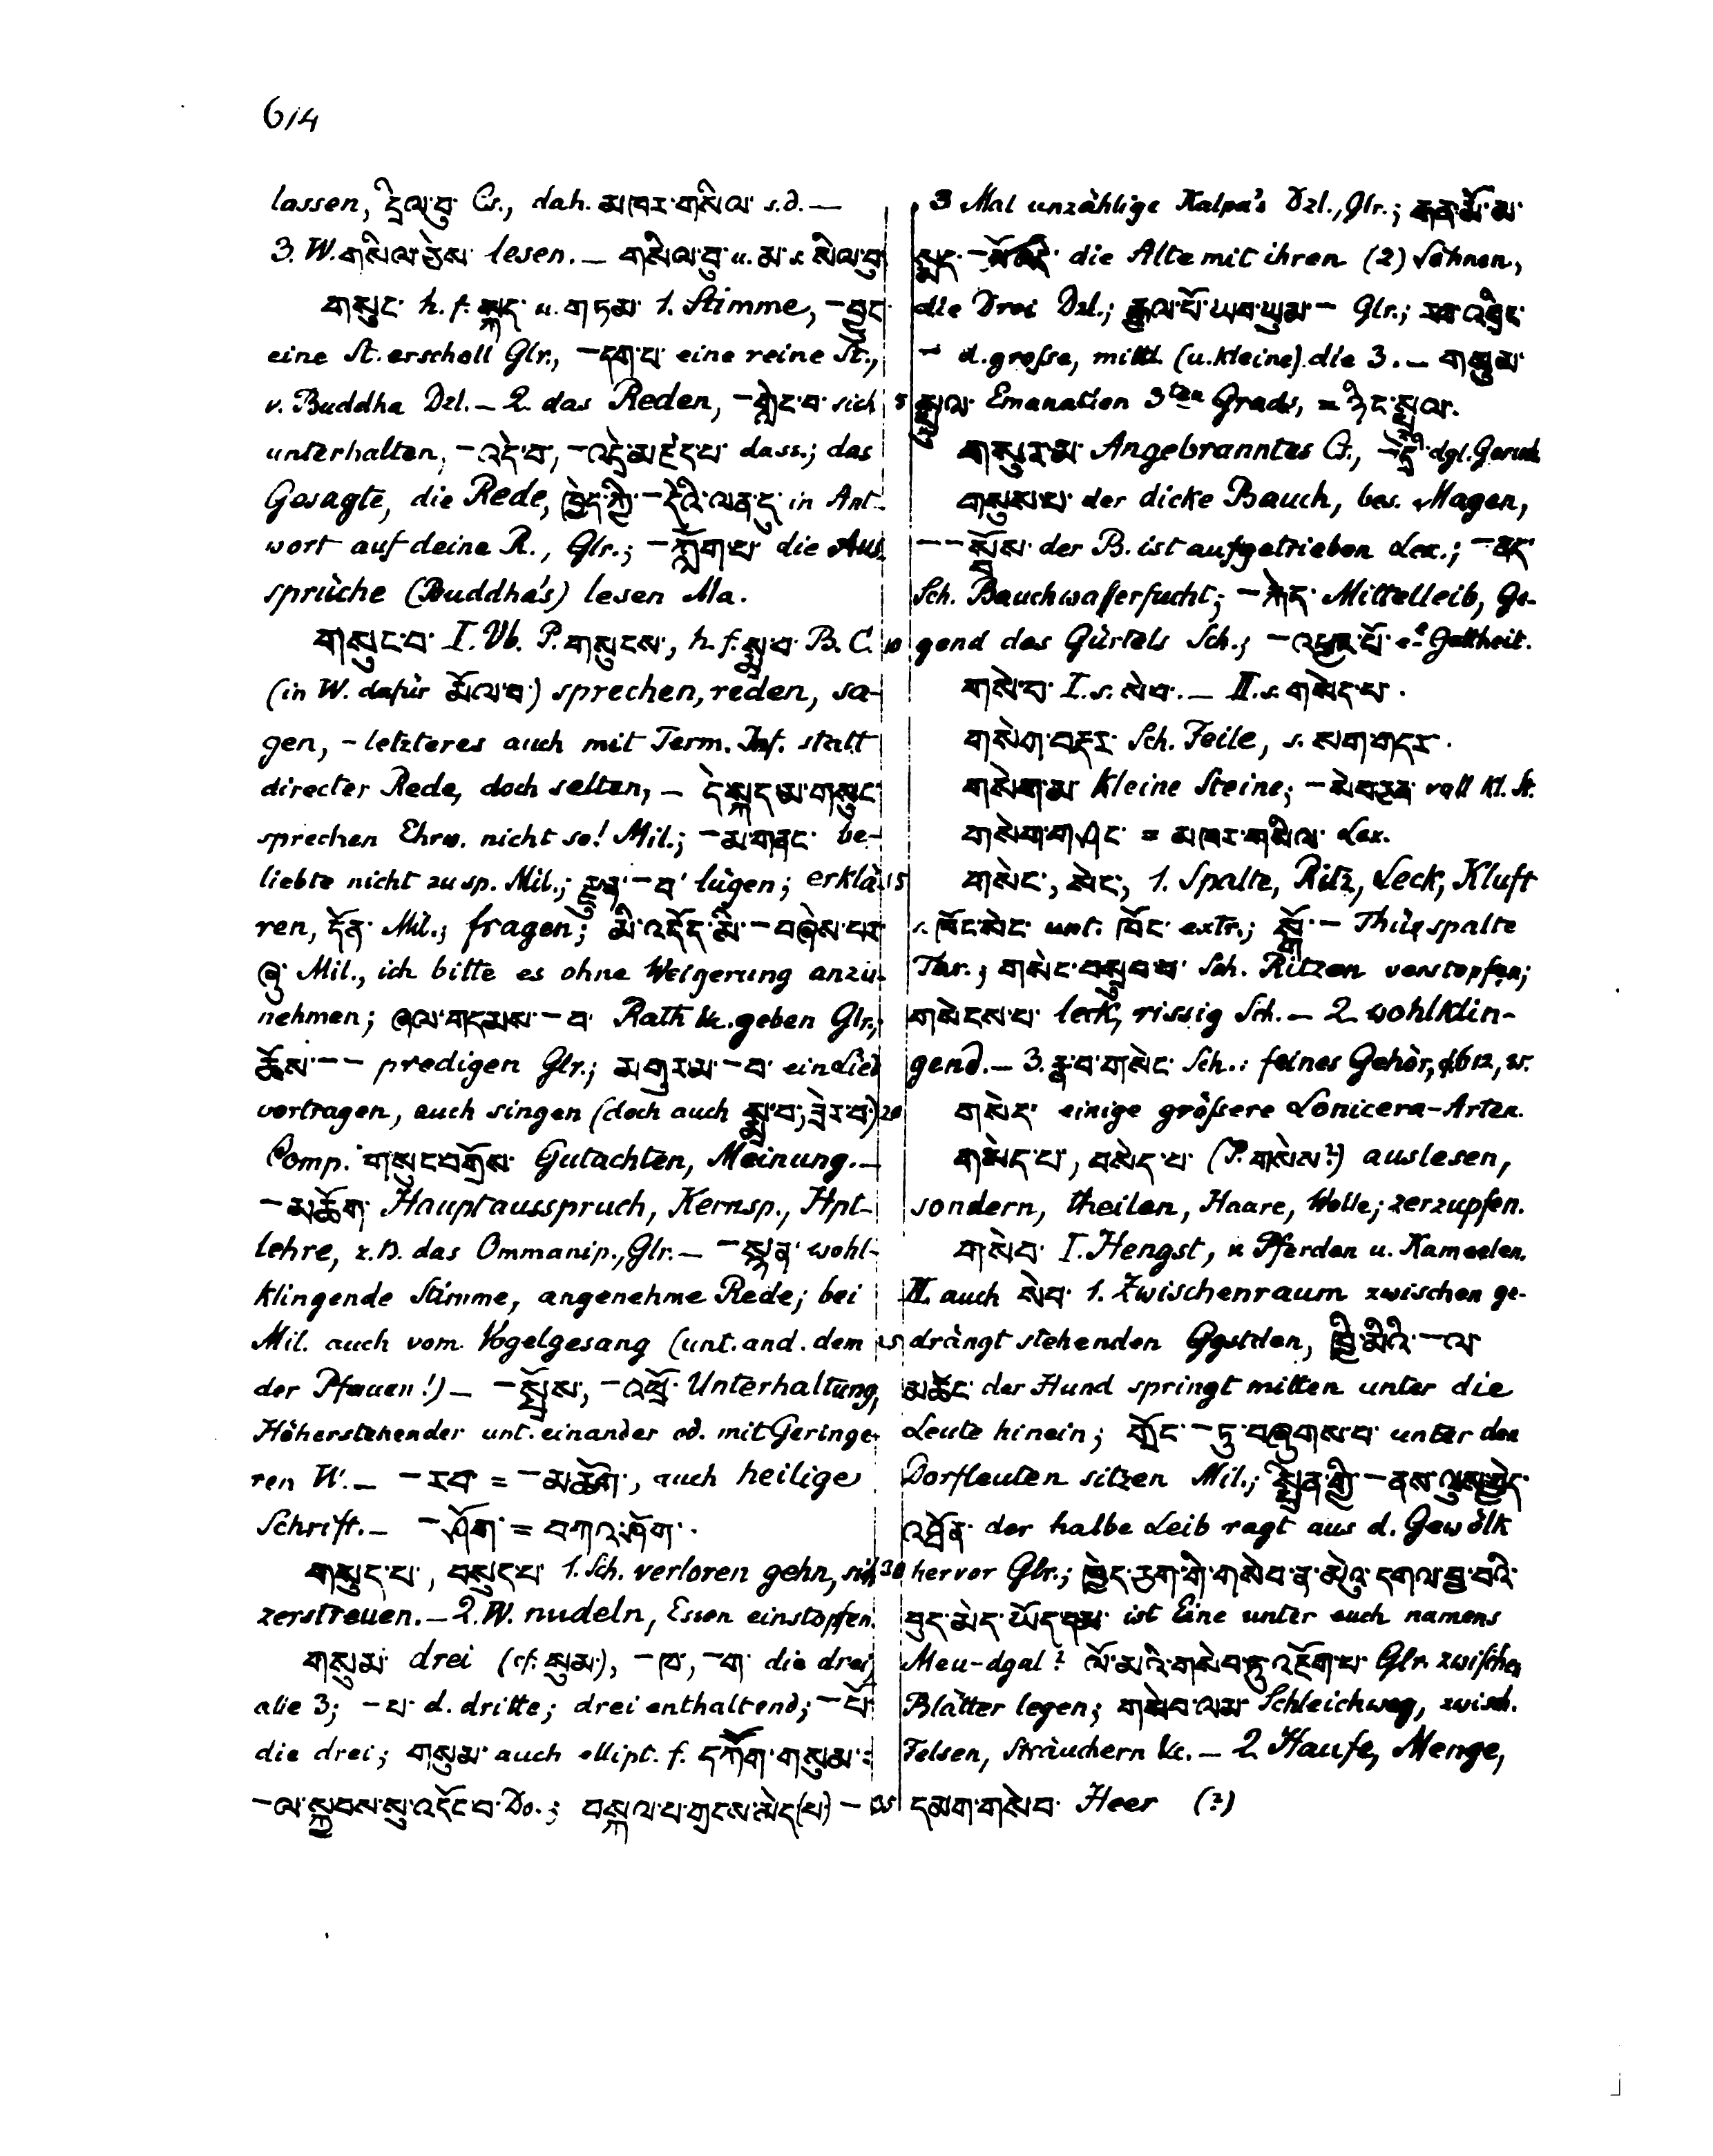 614
lassen, དྲིལ་བུ་ Cs., dah. མཁར་གསིལ་ s.d. —
3. W. གསིལ་ཅེས་ lesen. — གསིལ་བུ་ u. མ་ s. སིལ་བུ
གསུང་ h. f. སྐད་ u. གཏམ་ 1. Stimme, – བྱུང་
eine St. erscholl Glr., – དག་པ་ eine reine St.,
v. Buddha Dzl. — 2. das Reden, – གླེང་བ་ sich
unterhalten, – འདྲེ་བ་, – འདྲེ་མཛད་པ་ dass.; das
Gesagte, die Rede, ཁྱེད་ཀྱི་ – དེའི་ལན་དུ་ in Ant-
wort auf deine R., Glr.; – ཀློག་པ་ die Aus
sprüche (Buddha's) lesen Ma.
གསུང་བ་ I. Vb. P. གསུངས་, h. f. སྨྲ་བ་ B. C.
(in W. dafür མོལ་བ་) sprechen, reden, sa-
gen, – letzteres auch mit Term. Inf. statt
directer Rede, doch selten, – དེ་སྐད་མ་གསུང་
sprechen Ehrw. nicht so! Mil.; – མ་གནང་ be-
liebte nicht zu sp. Mil.; རྫུན་ – བ་ lügen; erklä-
ren, དོན་ Mil.; fragen; མི་འདོད་མི་ – བཞེས་པར་
ཞུ་ Mil., ich bitte es ohne Weigerung anzu-
nehmen; ཞལ་གདམས་ – བ་ Rath &c. geben Glr.;
ཆོས་ – – predigen Glr.; མགུར་མ་ – བ་ ein Lied
vortragen, auch singen (doch auch སྨྲ་བ་, ཟེར་བ་)
Comp. གསུང་བགྲོས་ Gutachten, Meinung. —
– མཆོག་ Hauptausspruch, Kernsp., Hpt-
lehre, z.B. das Ommanip., Glr. — – སྙན་ wohl-
klingende Stimme, angenehme Rede; bei
Mil. auch vom Vogelgesang (unt. and. dem
der Pfauen!) — – སྤྲོས་, – འཕྲོ་ Unterhaltung,
Höherstehender unt. einander od. mit Geringe-
ren W. — – རབ་ = – མཆོག་, auch heilige
Schrift. — – ཤོག་ = བཀའ་ཤོག་.
གསུད་པ་, བསུད་པ་ 1. Sch. verloren gehn, sich
zerstreuen. — 2. W. nudeln, Essen einstopfen.
གསུམ་ drei (cf. སུམ་), – ཁ་, – ག་ die drei,
alle 3; – པ་ d. dritte; drei enthaltend; – པོ་
die drei; གསུམ་ auch ellipt. f. དཀོག་གསུམ་:
– ལ་སྐྱབས་སུ་འདོང་བ་ Do.; བསྐལ་པ་གྲངས་མེད(པ) –
3 Mal unzählige Kalpa's Dzl., Glr.; རྒན་མོ་མ་
སྨད་ – die Alte mit ihren (2) Söhnen,
die Drei Dzl.; རྒྱལ་པོ་ཡབ་ཡུམ་ – Glr.; རབ་འབྲིང་
– d. große, mittl. (u. kleine) die 3. — གསུམ་
5 སྤྲུལ་ Emanation 3ten Grads, = ཉིང་སྤྲུལ་.
གསུར་མ་ Angebranntes Cs., – དྲི་ dgl. Geruch
གསུས་པ་ der dicke Bauch, bes. Magen,
– – སྦོས་ der B. ist aufgetrieben Lex.; – ནད་
Sch. Bauchwaßersucht; – རྐེད་ Mittelleib, Ge-
10 gend des Gürtels Sch.; – འཕྱང་པོ་ e. Gottheit.
གསེ་བ་ I. s. སེ་བ་. — II. s. གསེད་པ་.
གསེག་བརྡར་ Sch. Feile, s. སག་གདར་.
གསེག་མ་ kleine Steine; – སེབ་ཅན་ voll kl. St.
གསེག་གཤང་ = མཁར་གསིལ་ Lex.
15 གསེང་, སེང་, 1. Spalte, Ritz, Leck, Kluft
s. ཁོང་སེང་ unt. ཁོང་ extr.; སྒོ་ – Thürspalte
Thr.; གསེང་བསུབ་བ་ Sch. Ritzen verstopfen;
གསེངས་པ་ leck, rissig Sch. — 2. wohlklin-
gend. — 3. རྣ་བ་གསེང་ Sch.: feines Gehör,
20 གསེད་ einige größere Lonicera-Arten.
གསེད་པ་, བསེད་པ་ (P. གསེས?) auslesen,
sondern, theilen, Haare, Wolle; zerzupfen.
གསེབ་ I. Hengst, v. Pferden u. Kameelen.
II. auch སེབ་ 1. Zwischenraum zwischen ge-
25 drängt stehenden Ggstden, ཁྱི་མིའི་ – ལ་
མཆོང་ der Hund springt mitten unter die
Leute hinein; གྲོང་ – ཏུ་བཞུགས་པ་ unter den
Dorfleuten sitzen Mil.; སྤྲིན་གྱི་ – ནས་ལུས་ཕྱེད་
འཐོན་ der halbe Leib ragt aus d. Gewölk
30 hervor Glr.; ཁྱེད་ཅག་གི་གསེབ་ན་མེའུ་དགལ་བྱ་བའི་
བུད་མེད་ཡོད་དམ་ ist Eine unter euch namens
Meu-dgal? ལོ་མའི་གསེབ་ཏུ་འཇོག་པ་ Glr. zwischen
Blätter legen; གསེབ་ལམ་ Schleichweg, zwisch.
Felsen, Sträuchern &c. — 2. Haufe, Menge,
35 དམག་གསེབ་ Heer (?)